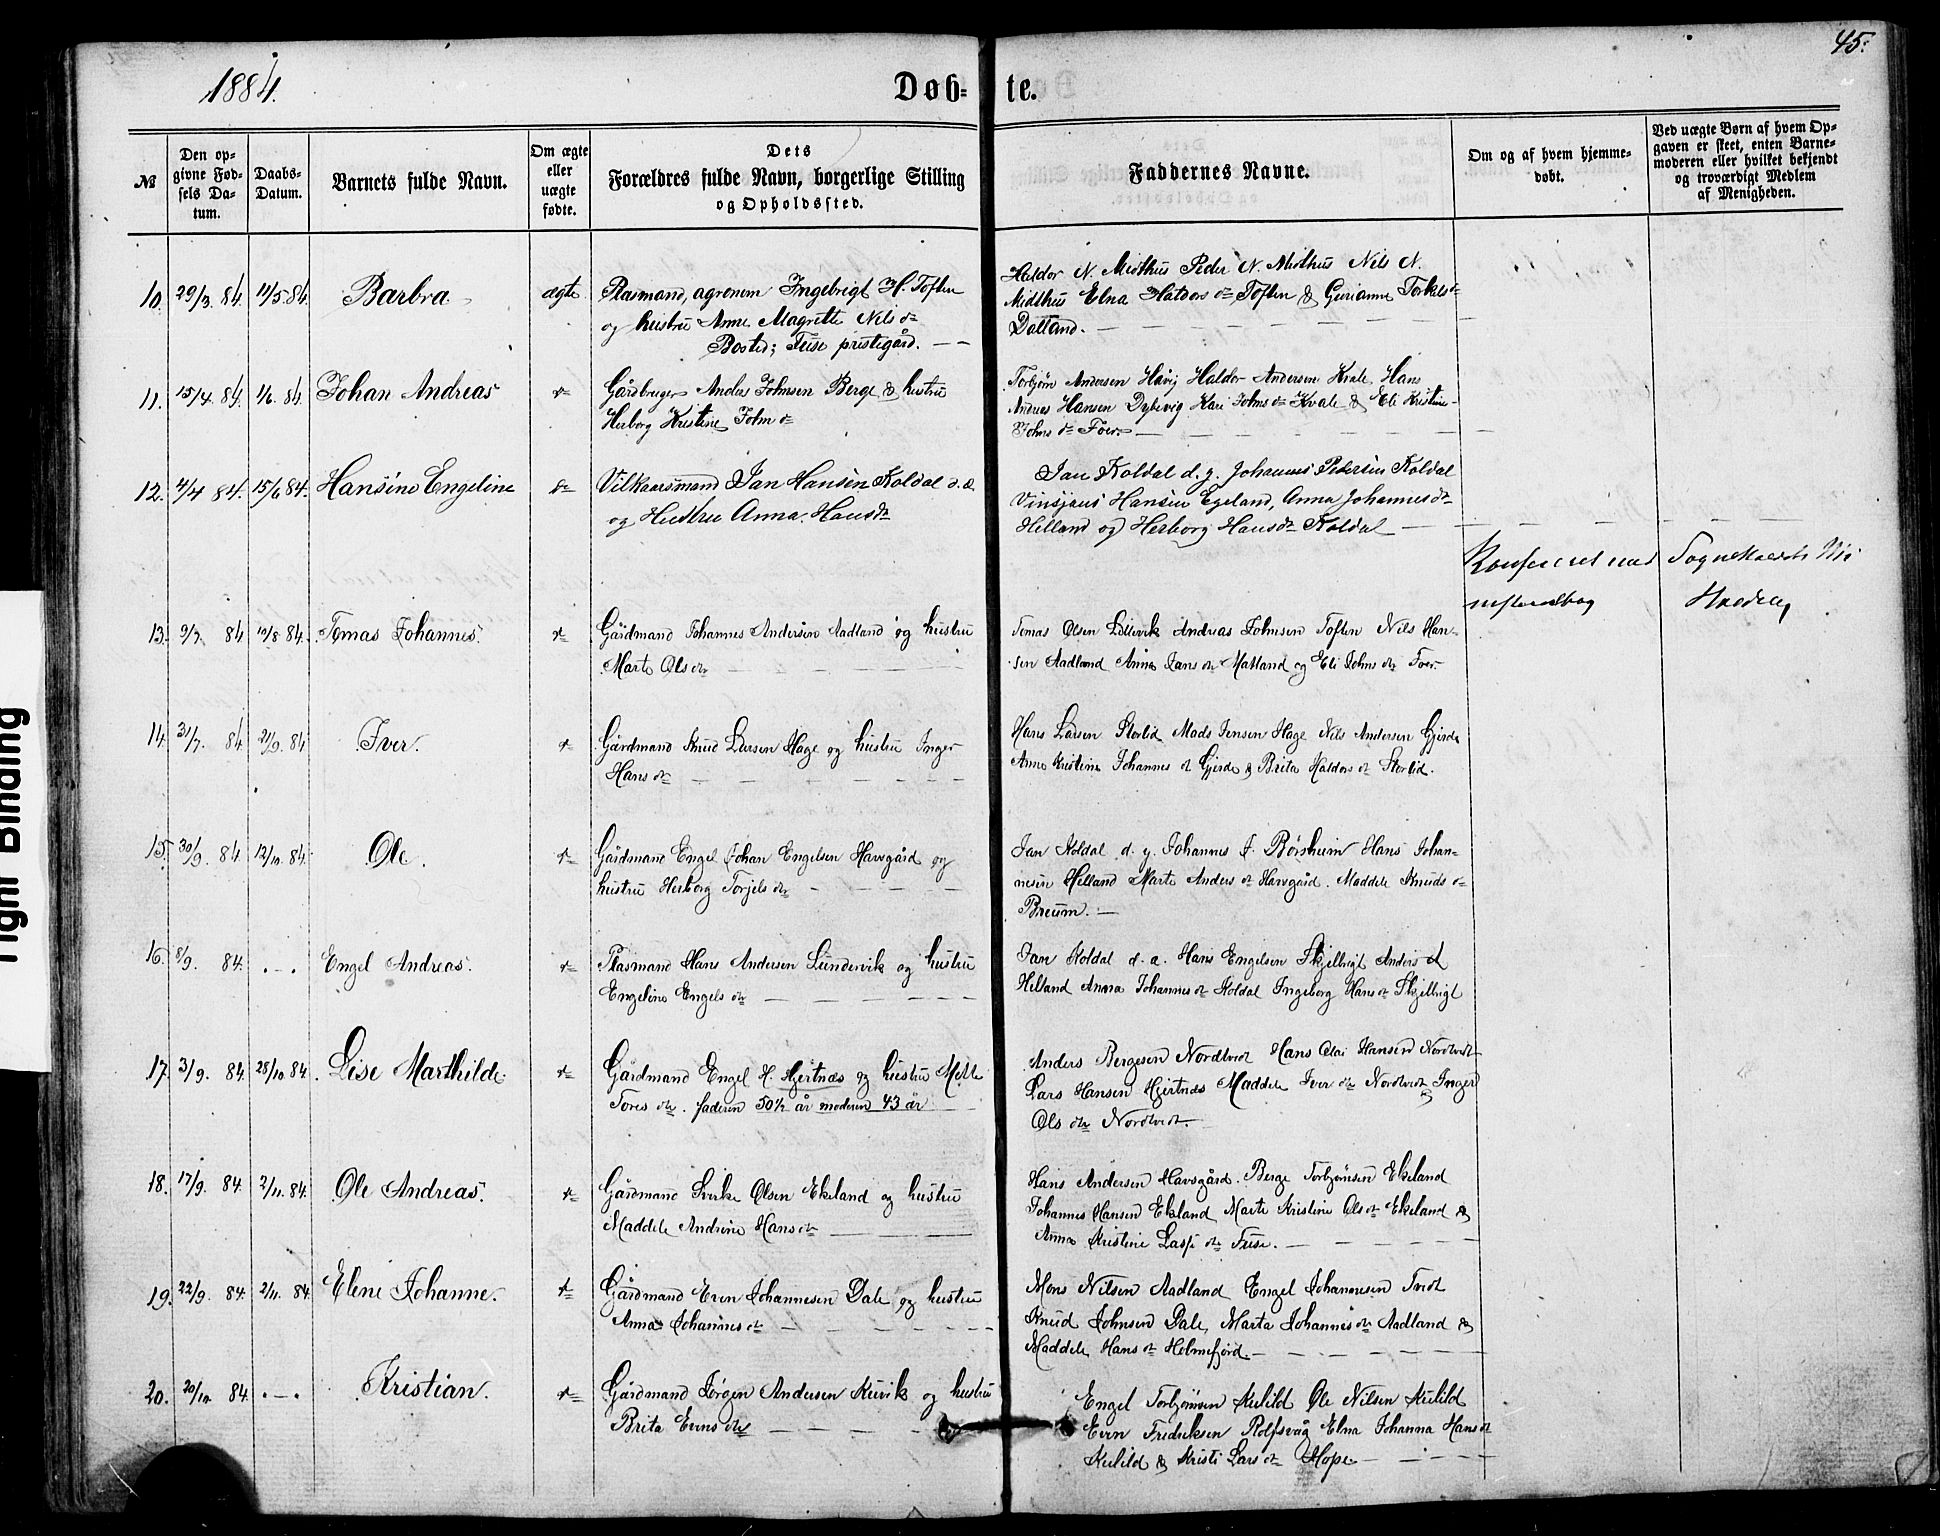 1884.
Døb-
te.
45.
№
Den op-
givne Fød-
sels Da-
tum.
Daabs-
Datum.
Barnets fulde Navn.
Om ægte
eller
uægte
fødte.
Dets
Forældres fulde Navn, borgerlige Stilling
og Opholdssted.
Faddernes Navne.
Om og af hvem hjemme-
døbt.
Ved uægte Børn af hvem Op-
gaven er skeet, enten Barne-
moderen eller hvilket bekjendt
og troværdigt Medlem
af Menigheden.
10. 29/3. 84. 11/5 84. Barbra ægte
Plasmand, agronom Ingebrigt H. Toften
og hustru Anne Magrette Nils dr
Bosted; Fuse prestegård.
Haldor N. Midthus Peder N. Midthus Nils N.
Midthus Elna Haldors dr Toften & Gurianne Torkels dr
Dalland.
11. 15/4. 84. 1/6. 84. Johan Andreas
Gårdbruger Andas Johnsen Berge & hustru
Herborg Kristine John dr
Torbjørn Andersen Håvig Haldor Andersen Kvale, Hans
Andreas Hansen Dybevig Kari Johns dr Kvale & Eli Kristine
Johns dr Foer.
12. 4/4 84. 15/6 84. Hansine Engeline
Vilkaarsmand Jan Hansen Koldal d. æ.
og Hustru Anna Hansdr
Jan Koldal d. y. Johannes Pedersen Koldal
Vinsjans Hansen Egeland, Anna Johannesdr
Helland og Herborg Hansdr Koldal
Konfereret med
Sognekaldets
13. 9/7. 84 10/8. 84. Tomas Johannes.
Gårdmand Johannes Andersen Aadland og hustru
Marte Ols dr
Tomas Olsen Lillevik Andreas Johnsen Toften Nils Han-
sen Aadland Anna Jans dr Matland og Eli Johns dr Foer
14. 31/7. 84 21/9. 84 Iver.
Gårdmand Knud Larsen Hage og hustru Inger
Hans dr
Hans Larsen Storlid Mads Jensen Hage Nils Andersen Gjerde
Anne Kristine Johannes d Gjerde & Brita Haldors dr Storlid.
15. 30/9. 84. 12/10. 84. Ole.
Gårdmand Engel Johan Engelsen Havsgård og
hustru Herborg Torjels dr
Jan Koldal d. y. Johannes J. Børsheim Hans Johan-
nesen Helland Marte Anders dr Havsgård. Maddele Knuds dr
Breum.
16. 8/9. 84. Engel Andreas.
Plasmand Hans Andersen Lundervik og hustru
Engeline Engels dr
Jan Koldal d. æ. Hans Engelsen Skjelbrigt Anders d
Helland Anna Johannes dr Koldal Ingeborg Hans dr Skjelbrigt
17. 3/9. 84. 28/10 84. Lise Marthilde
Gårdmand Engel H. Hjertnæs og hustru Mette
Tores dr. faderen 50½ år moderen 43 år
Anders Bergesen Nordtvedt Hans Olai Hansen Nordtvedt
Lars Hansen Hjertnæs Maddele Iver dr Nordtvedt & Inger
Ols dr Nordtvedt.
18. 17/9. 84. 2/11. 84. Ole Andreas.
Gårdmand Sverke Olsen Ekeland og hustru
Maddele Andrine Hans dr
Hans Andersen Havsgård. Berge Torbjørnsen Ekeland
Johannes Hansen Ekeland Marte Kristine Ols dr Ekeland &
Anna Kristine Lasse dr Fuse.
19. 22/9. 84. 2/11. 84 Elene Johanne.
Gårdmand Even Johannesen Dale og hustru
Anna Johannes dr
Mons Nilsen Aadland Engel Johannesen Tvedt
Knud Johnsen Dale, Marta Johannes dr Aadland &
Maddele Hans dr Holmefjord
20. 20/10. 84. Kristian.
Gårdmand Jørgen Andersen Kuvik og hustru
Brita Evens dr
Engel Torbjørnsen Kulild Ole Nilsen Kulild
Even Fredriksen Rolfsvåg Elna Johanna Hans dr
Kulild & Kristi Lars dr Hope
Tight Binding